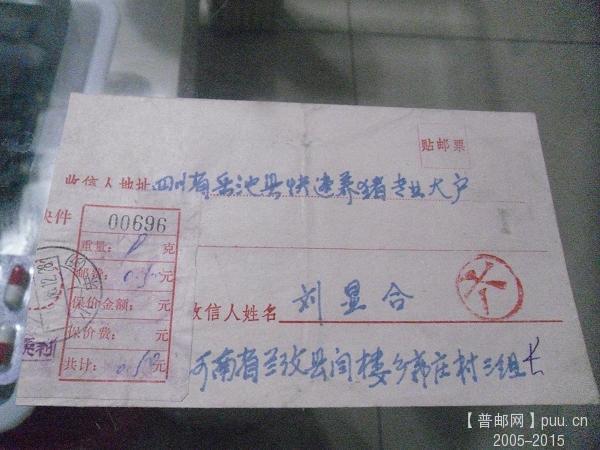 贴邮票
收信人地址 四川省岳池县快速养猪专业大户
快件
00696
重量: 8 克
邮费: 0.50 元
保价金额: 元
保价费: 元
共计: 0.50 元
收信人姓名 刘显合
河南省兰考县闫楼乡郭庄村三组
【普邮网】puu.cn
2005-2015